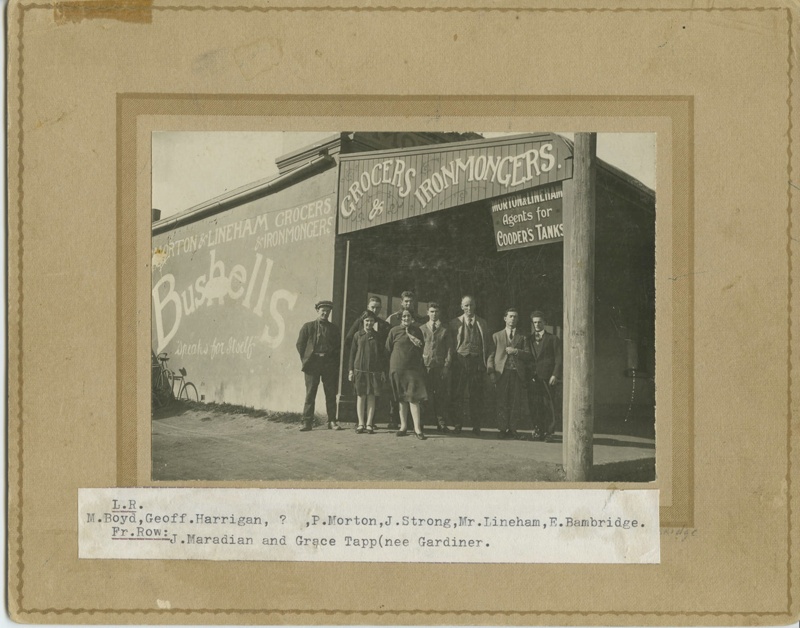 GROCERS & IRONMONGERS.
MORTON & LINEHAM
Agents for
COOPER'S TANKS
MORTON & LINEHAM GROCERS
& IRONMONGERS
Bushells
Speaks for Itself
L.R.
M.Boyd,Geoff.Harrigan, ? ,P.Morton,J.Strong,Mr.Lineham,E.Bambridge.
Fr.Row:J.Maradian and Grace Tapp(nee Gardiner.